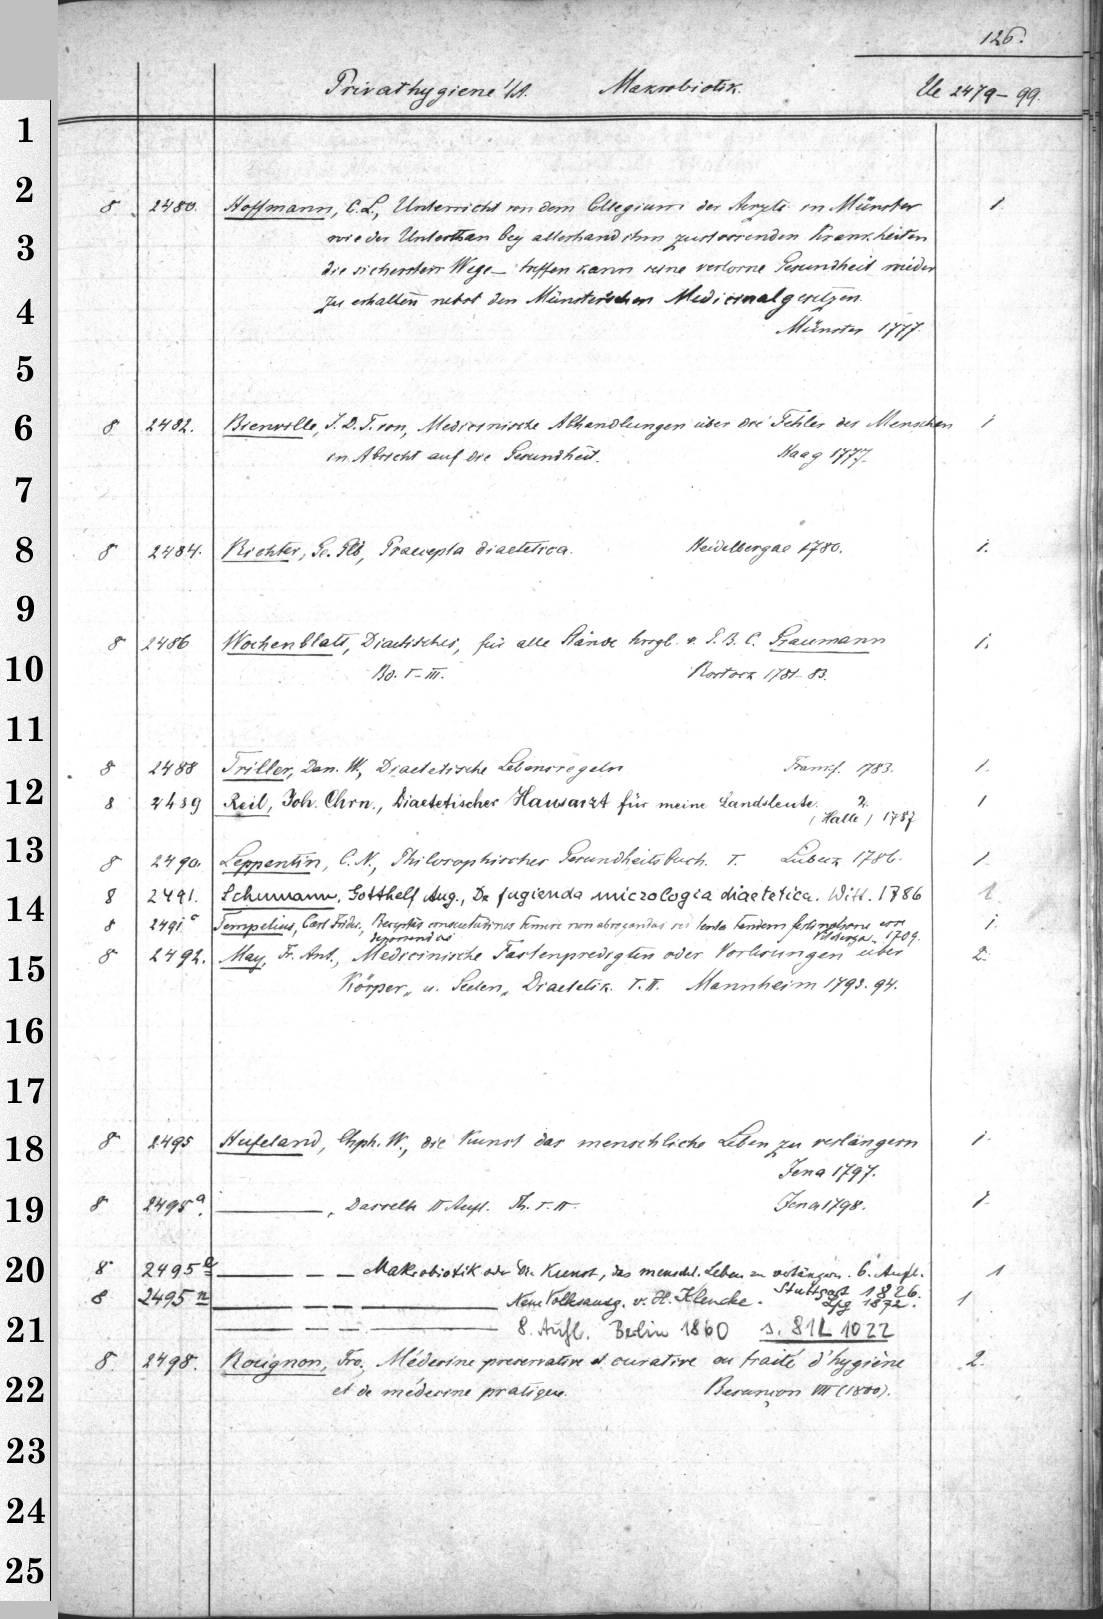 126.
Privathygiene '/1. Makrobiotik. Ue 2479-99.
8 2480. Hoffmann, C.L., Unterricht von dem Collegium der Aerzte in Münster 1.
wie der Unterthan bey allerhand ihm zustossenden Krankheiten
die sichersten Wege treffen kann seine verlorne Gesundheit wieder
zu erhalten nebst den Münsterschen Medicinalgesetzen.
Münster 1777.
8 2482. Bienville, J.D.T. von, Medicinische Abhandlungen über die Fehler der Menschen 1
in Absicht auf die Gesundheit. Haag 1777.
8 2484. Richter, Ge. Glb, Praecepta diaetetica. Heidelbergae 1780. 1.
8 2486 Wochenblatt, Diaetisches, für alle Stände hrsgb. v. G.B.C. Graumann 1.
Bd. I-III. Rostock 1781-83.
8 2488 Triller, Dan. W., Diaetetische Lebensregeln Frankf. 1783. 1.
8 2489 Reil, Joh. Chrn., Diaetetischer Hausarzt für meine Landsleute. 2. 1
(Halle) 1787
8 2490. Leppentin, C.N., Philosophisches Gesundheitsbuch. I. Lübeck 1786. 1.
8 2491. Schumann, Gotthelf Aug., De fugienda micrologia diaetetica. Witt. 1786 1
8 2491 c Tempelius, Carl Fridr., consuetudines temere non abrogandas sed lente tandem 1.
1709.
8 2492. May, Fr. Ant., Medicinische Fastenpredigten oder Vorlesungen über 2.
Körper„ u. Seelen„ Diaetetik. I.II. Mannheim 1793. 94.
8 2495 Hufeland, Chph. W., die Kunst das menschliche Leben zu verlängern 1.
Jena 1797.
8 2495 a. ———, Dasselbe II Aufl. Th. I.II. Jena 1798. 1.
8 2495 ——— — — Makrobiotik oder die Kunst, das menschl. Leben zu verlängern. 6. Aufl. 1
Stuttgart 1826.
8 2495 n ——— — — ——— Neue Volksausg. v. H. Klencke. Lpg 1872. 1
——— — — ——— 8. Aufl. Berlin 1860 s. 81L 1022
8. 2498. Rougnon, Fro., Médecine preservative et curative ou traité d'hygiène 2.
et de médecine pratique. Besançon VIII (1800).
1
2
3
4
5
6
7
8
9
10
11
12
13
14
15
16
17
18
19
20
21
22
23
24
25